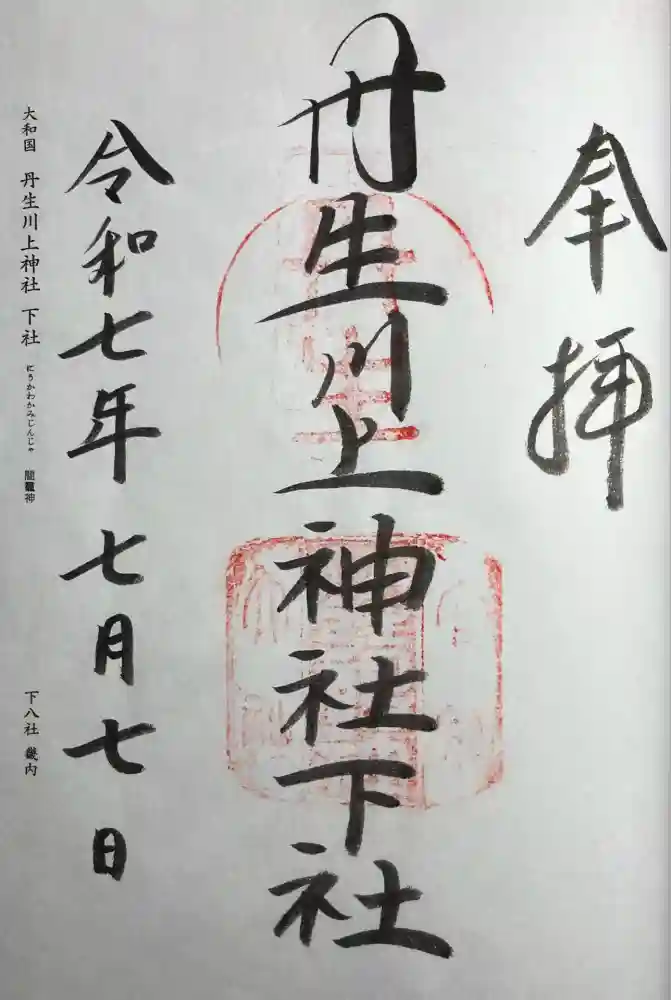 奉拝
丹生川上神社下社
令和七年七月七日
大和国 丹生川上神社 下社 にうかわかみじんじゃ 闇龗神
下八社 畿内